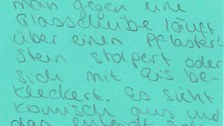 man gegen eine
Glasscheibe läuft
über einen Pflaster-
stein stolpert oder
sich mit Eis be-
kleckert. Es sieht
komisch aus und